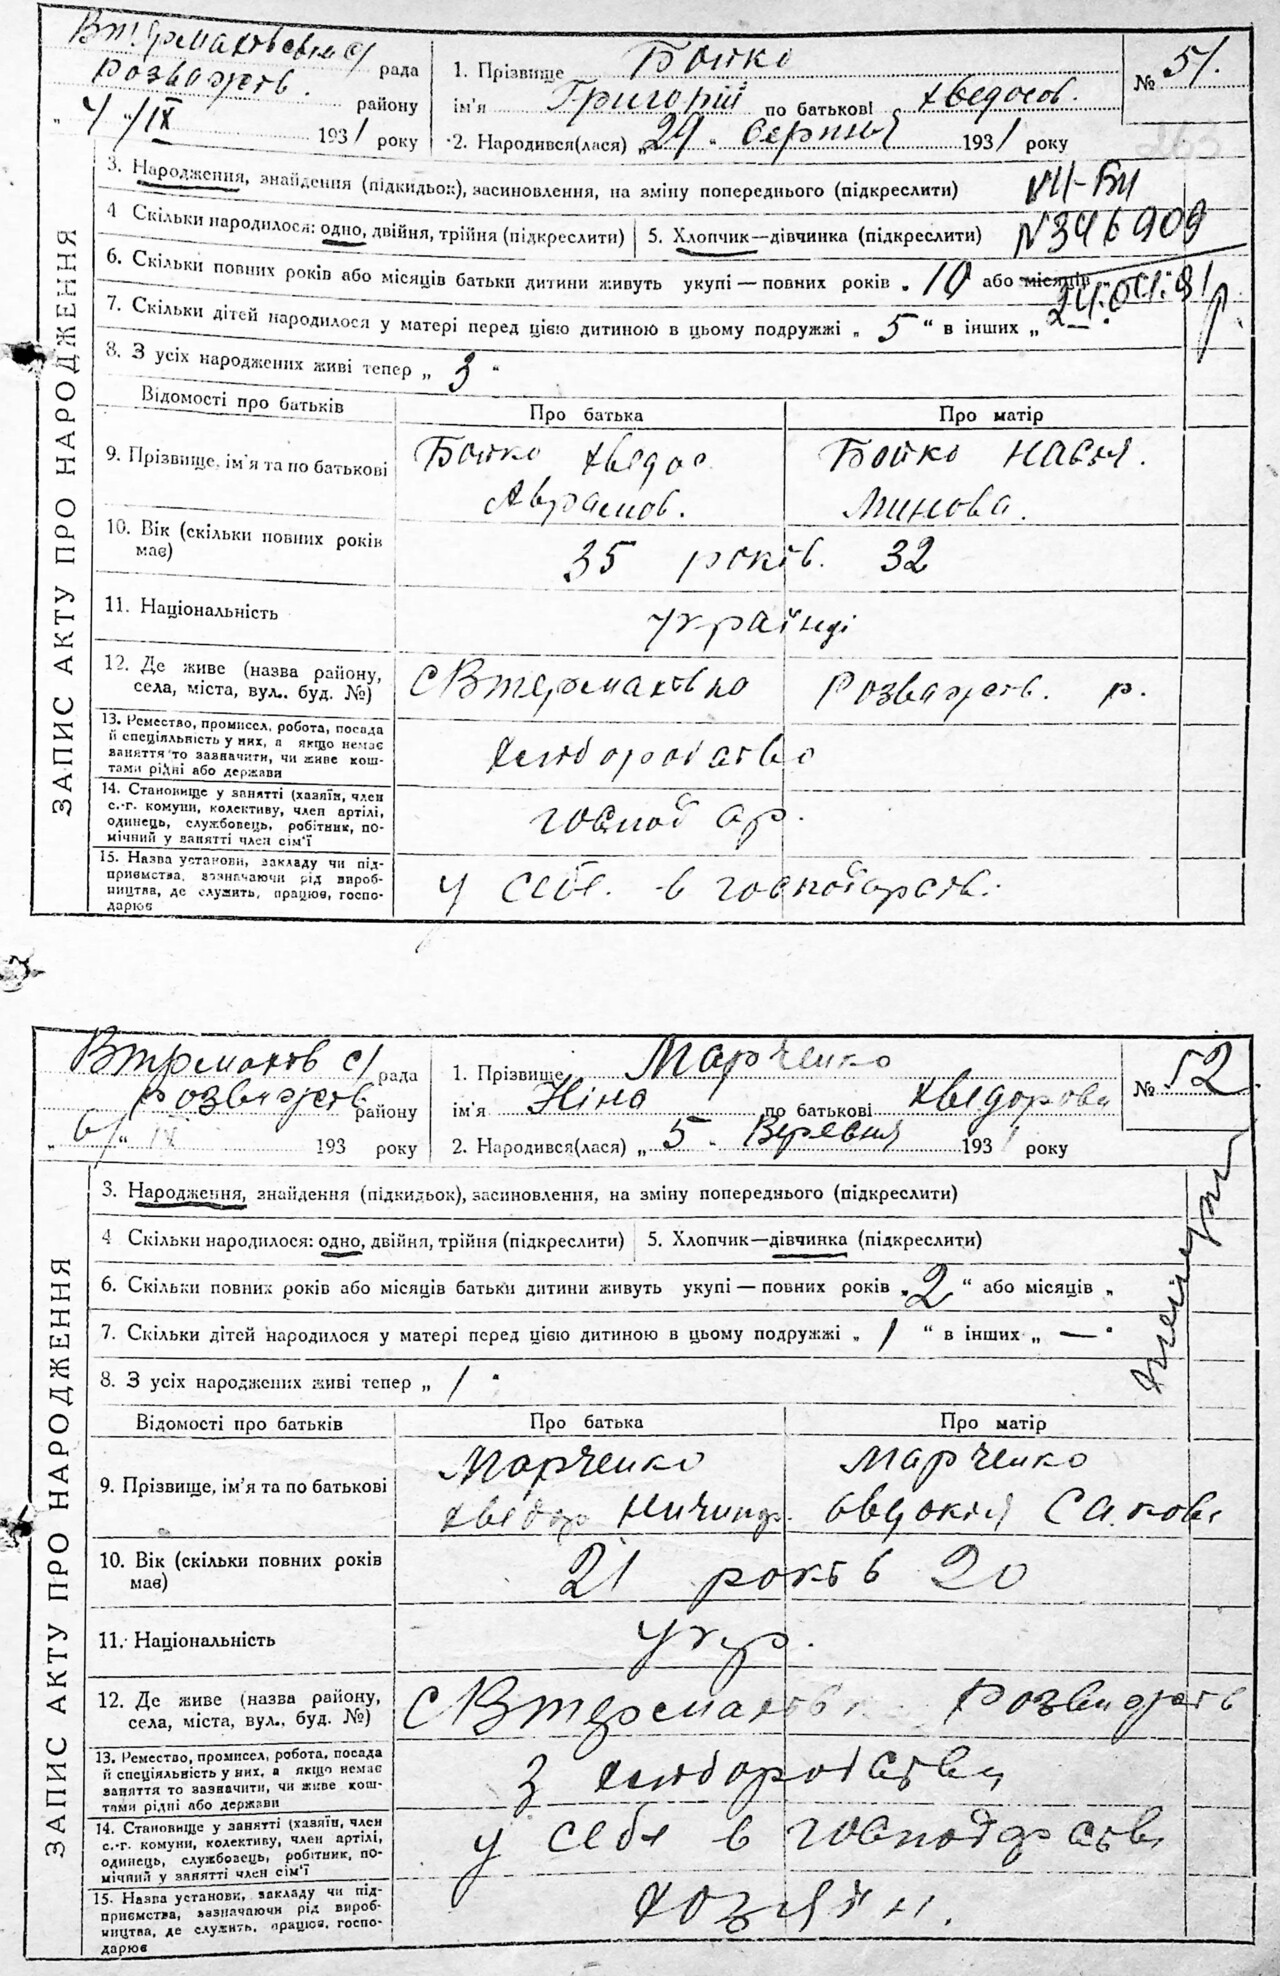 рада
Розважів. району
"4" /IX 1931 року
1. Прізвище Бойко
ім'я Григорій по батькові Хведосов.
2. Народився(лася) "29" серпня 1931 року
№ 51.
3. Народження, знайдення (підкидьок), засиновлення, на зміну попереднього (підкреслити)
4 Скільки народилося: одно, двійня, трійня (підкреслити)
5. Хлопчик—дівчинка (підкреслити)
№ 346909
6. Скільки повних років або місяців батьки дитини живуть укупі — повних років „ 10 або місяців
7. Скільки дітей народилося у матері перед цією дитиною в цьому подружжі „ 5 " в інших „ — "
8. З усіх народжених живі тепер „ 3 "
ЗАПИС АКТУ ПРО НАРОДЖЕННЯ
Відомості про батьків
Про батька
Про матір
9. Прізвище, ім'я та по батькові
Бойко Хведос
Аврамов.
Бойко Настя.
Минова.
10. Вік (скільки повних років
має)
35 років. 32
11. Національність
українці
12. Де живе (назва району,
села, міста, вул., буд. №)
Розважів. р.
13. Ремество, промисел, робота, посада
й спеціяльність у них, а якщо немає
заняття то зазначити, чи живе кош-
тами рідні або держави
хліборобство
14. Становище у занятті (хазяїн, член
с.-г. комуни, колективу, член артілі,
одинець, службовець, робітник, по-
мічний у занятті член сім'ї
господар.
15. Назва установи, закладу чи під-
приємства, зазначаючи рід вироб-
ництва, де служить, працює, госпо-
дарює
у себе. в господарстві.
рада
Розважів району
"6" IX 193 року
1. Прізвище Марченко
ім'я Ніна по батькові Хведорова
2. Народився(лася) „ 5 " Вересня 1931 року
№ 52.
3. Народження, знайдення (підкидьок), засиновлення, на зміну попереднього (підкреслити)
4 Скільки народилося: одно, двійня, трійня (підкреслити)
5. Хлопчик—дівчинка (підкреслити)
6. Скільки повних років або місяців батьки дитини живуть укупі — повних років „ 2 " або місяців „
7. Скільки дітей народилося у матері перед цією дитиною в цьому подружжі „ 1 " в інших „ — "
8. З усіх народжених живі тепер „ 1 "
ЗАПИС АКТУ ПРО НАРОДЖЕННЯ
Відомості про батьків
Про батька
Про матір
9. Прізвище, ім'я та по батькові
Марченко
Хведор Ничипор.
Марченко
Овдокія
10. Вік (скільки повних років
має)
21 років 20
11. Національність
укр.
12. Де живе (назва району,
села, міста, вул., буд. №)
Розважів
13. Ремество, промисел, робота, посада
й спеціяльність у них, а якщо немає
заняття то зазначити, чи живе кош-
тами рідні або держави
З хліборобства
14. Становище у занятті (хазяїн, член
с.-г. комуни, колективу, член артілі,
одинець, службовець, робітник, по-
мічний у занятті член сім'ї
у себе в господарстві
15. Назва установи, закладу чи під-
приємства, зазначаючи рід вироб-
ництва, де служить, працює, госпо-
дарює
хозяїн.